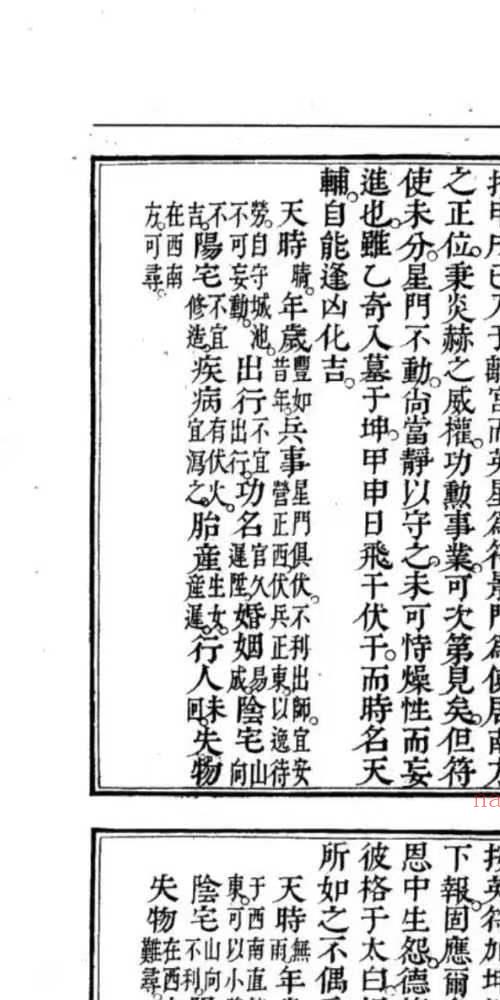 之正位。秉炎赫之威權。功勳事業。可次第見矣。但符
使未分。星門不動。尚當靜以守之。未可恃燥性而妄
進也。雖乙奇入墓于坤。甲申日飛干伏干。而時名天
輔。自能逢凶化吉。
天時晴。年歲豐如昔年。兵事星門俱伏。不利出師。宜安營正西。伏兵正東。以逸待
勞。自守城池。不可妄動。出行不宜出行。功名官久遲陞。婚姻易成。陰宅山向
不吉。陽宅不宜修造。疾病有伏火。宜瀉之。胎產生女。產遲。行人未回。失物
在西南方。可尋。
下報。固應爾
恩中生怨。德
彼格于太白。
所如之不偶
天時無雨。年
于西南直
東。可以小
陰宅山向不利。
失物在西
難尋。